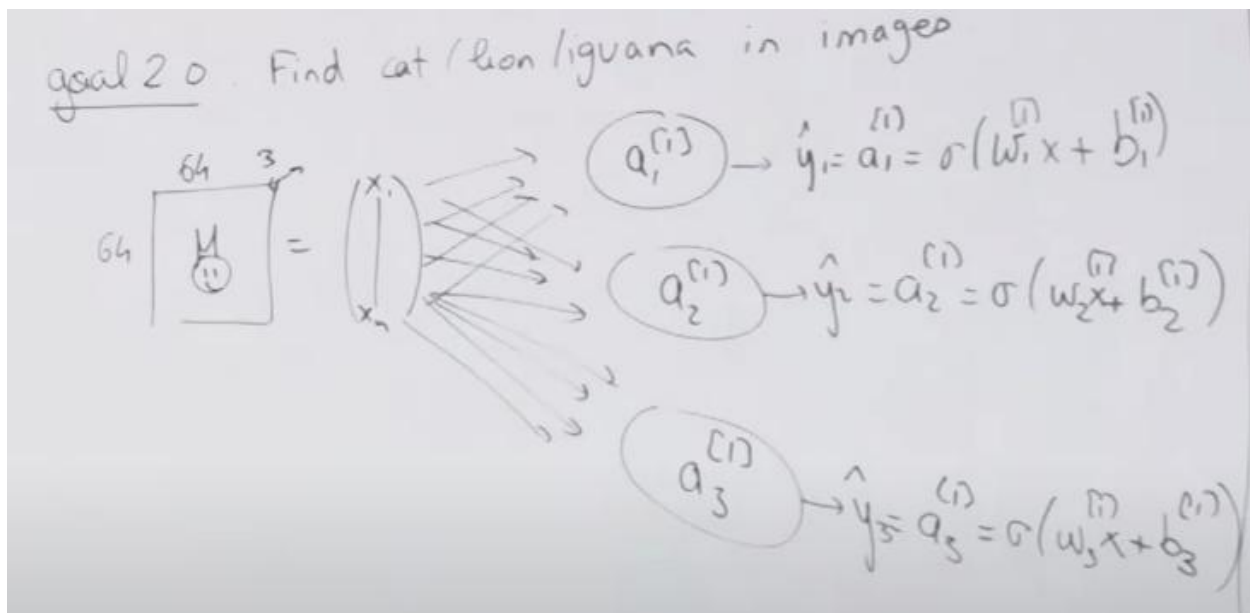 goal 2.0. Find cat/lion/iguana in images
64 3
64 = (x₁ xₙ)
a₁^[1] → ŷ₁ = a₁^[1] = σ(w₁^[1] x + b₁^[1])
a₂^[1] → ŷ₂ = a₂^[1] = σ(w₂^[1] x + b₂^[1])
a₃^[1] → ŷ₃ = a₃^[1] = σ(w₃^[1] x + b₃^[1])